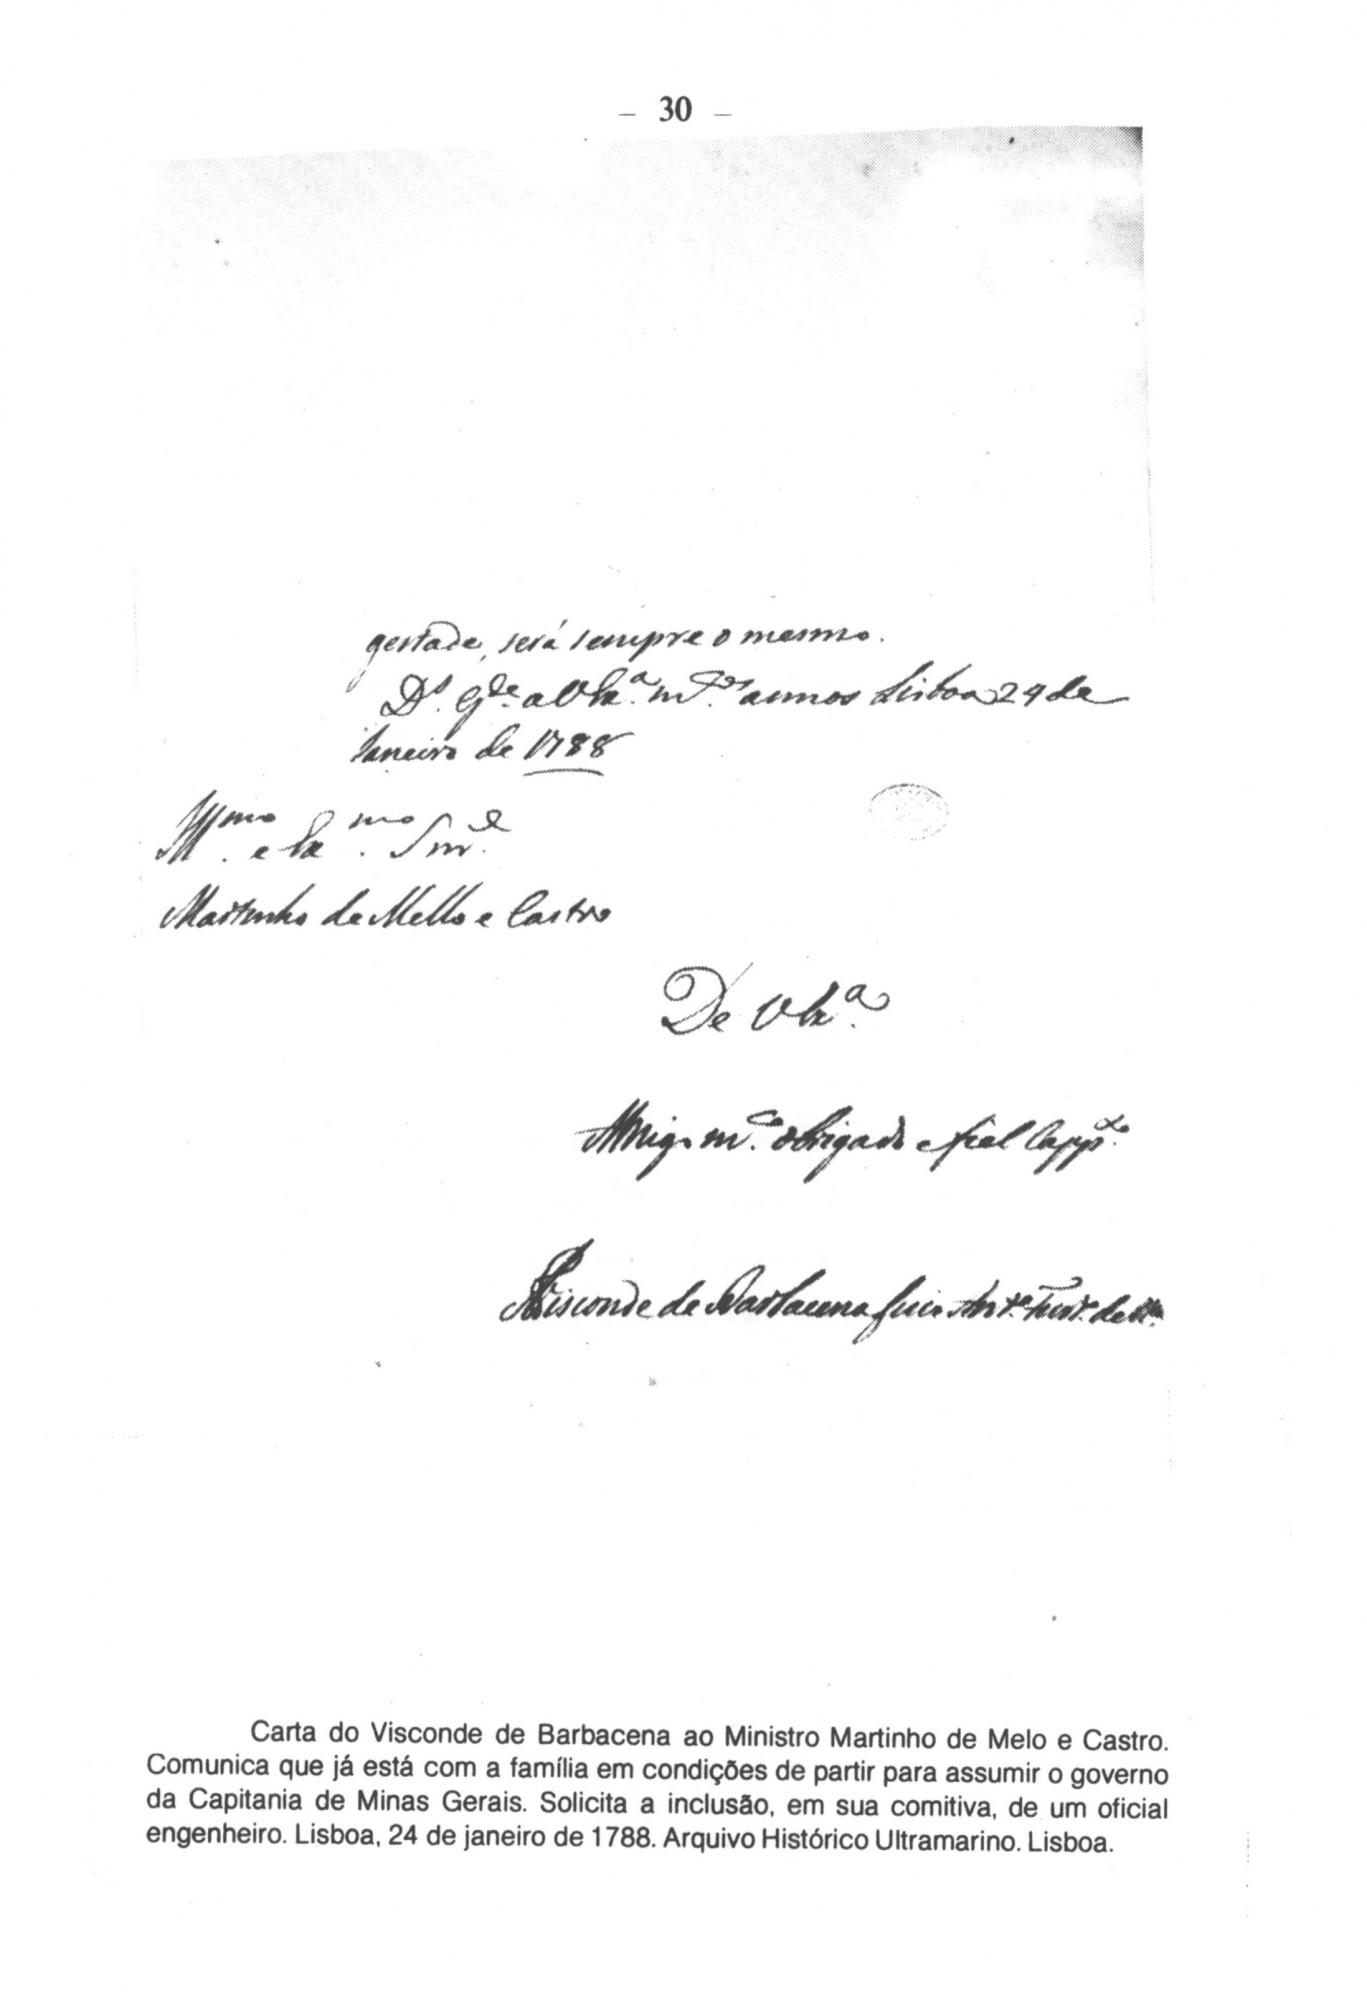 – 30 –
gestade, será sempre o mesmo.
Ds. gde. a V Exa. m. os annos Lisboa 24 de
Janeiro de 1788
Illmo. e Exmo. Snr.
Martinho de Mello e Castro
De V Exa.
Amigo mto. obrigado e fiel Capp.
Visconde de Barbacena Luis Anto. Furt. de M.
Carta do Visconde de Barbacena ao Ministro Martinho de Melo e Castro.
Comunica que já está com a família em condições de partir para assumir o governo
da Capitania de Minas Gerais. Solicita a inclusão, em sua comitiva, de um oficial
engenheiro. Lisboa, 24 de janeiro de 1788. Arquivo Histórico Ultramarino. Lisboa.